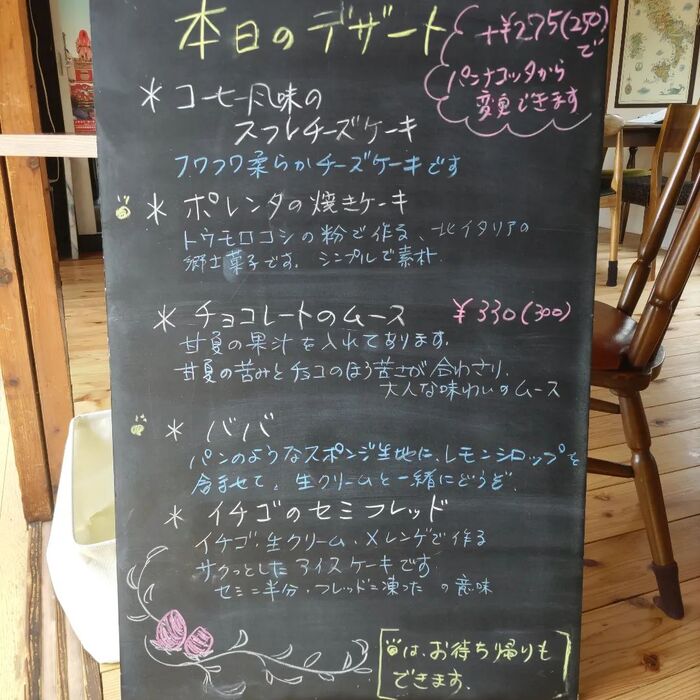 本日のデザート
+¥275(250)で
パンナコッタから
変更できます
* コーヒー風味の
スフレチーズケーキ
フワフワ柔らかチーズケーキです
* ポレンタの焼きケーキ
トウモロコシの粉で作る、北イタリアの
郷土菓子です。シンプルで素朴.
* チョコレートのムース ¥330(300)
甘夏の果汁を入れております。
甘夏の苦みとチョコのほう苦さが合わさり、
大人な味わいのムース
* ババ
パンのようなスポンジ生地に、レモンシロップを
含ませて、生クリームと一緒にどうぞ.
* イチゴのセミフレッド
イチゴ・生クリーム・メレンゲで作る
サクっとしたアイスケーキです.
セミ=半分・フレッド=凍った の意味
は、お待ち帰りも
できます.